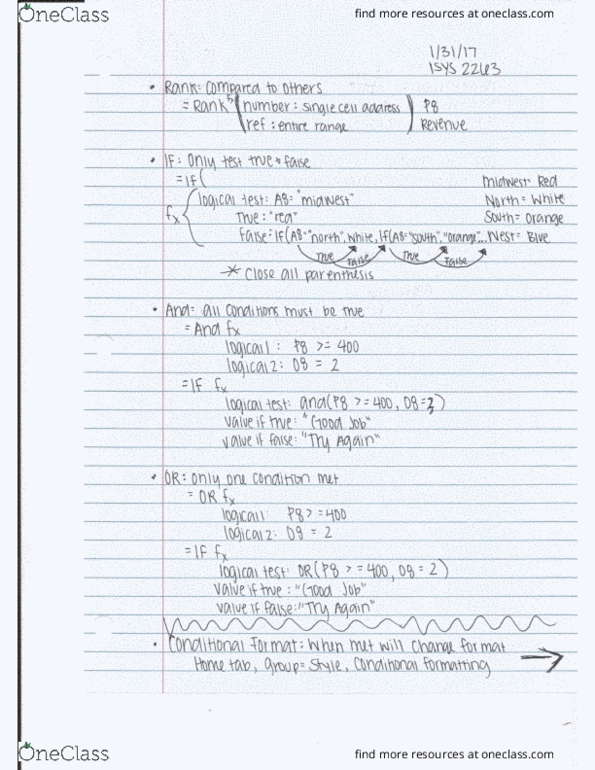 OneClass
find more resources at oneclass.com
1/31/17
ISYS 2263
• Rank: Compared to others
= Rank ( number: single cell address ) P8
ref: entire range Revenue
• IF: Only test true + false
= IF (
Midwest= Red
logical test: A8= "midwest" North= White
fx True: "red" South= Orange
False: IF(A8="north", white, If(A8="south", "orange"... West= Blue
True False True False
* Close all parenthesis
• And= all conditions must be true
= And fx
logical1: P8 >= 400
logical2: O8 = 2
= IF fx
logical test: and(P8 >= 400, O8=2)
value if true: "Good Job"
value if false: "Try Again"
• OR: only one condition met
= OR fx
logical1: P8 >= 400
logical2: O8 = 2
= IF fx
logical test: OR(P8 >= 400, O8 = 2)
Value if true: "Good Job"
value if false: "Try Again"
• Conditional format: When met will change format
Home tab, group= Style, Conditional formatting →
OneClass
find more resources at oneclass.com